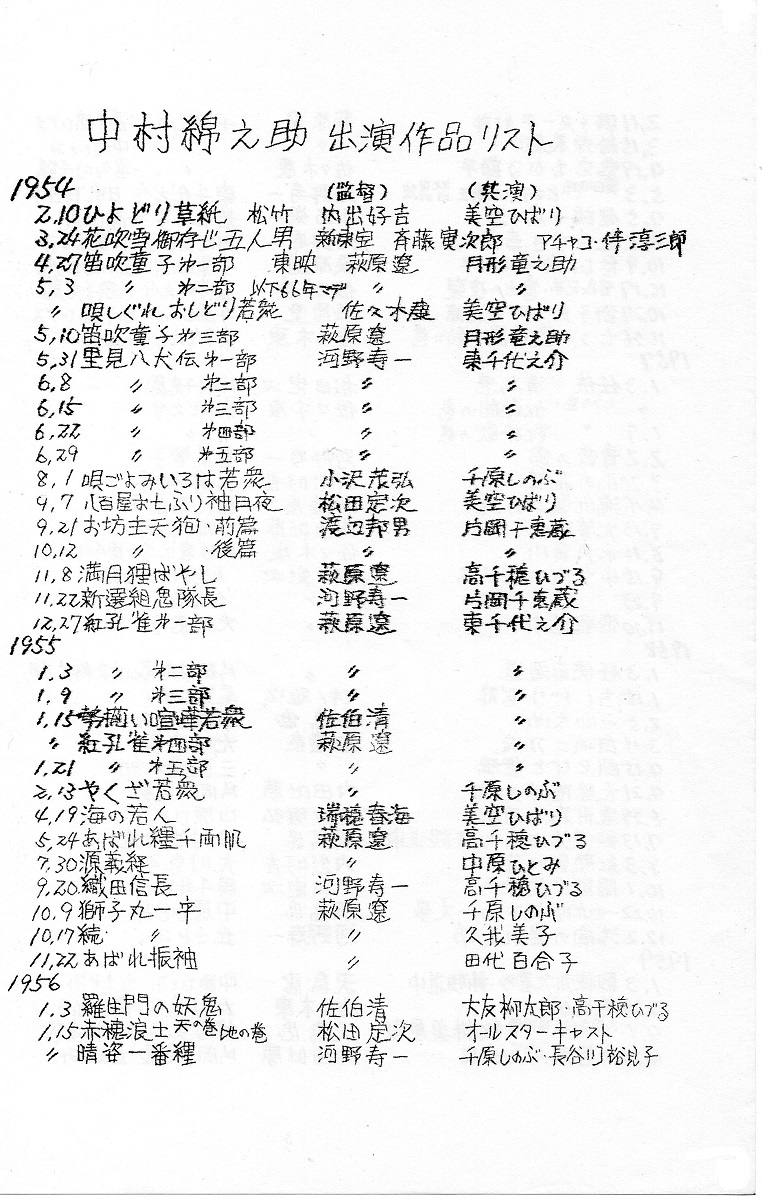 中村綿之助 出演作品リスト
1954 (監督) (共演)
2.10 ひよどり草紙 松竹 内出好吉 美空ひばり
3.24 花吹雪御存じ五人男 新東宝 斉藤寅次郎 アチャコ・伴淳三郎
4.27 笛吹童子才一部 東映 萩原遼 月形竜之助
5.3 〃 才二部 以下66年マデ 〃 〃
〃 唄しぐれおしどり若衆 佐々木康 美空ひばり
5.10 笛吹童子才三部 萩原遼 月形竜之助
5.31 里見八犬伝才一部 河野寿一 東千代之介
6.8 〃 才二部 〃 〃
6.15 〃 才三部 〃 〃
6.22 〃 才四部 〃 〃
6.29 〃 才五部 〃 〃
8.1 唄ごよみいろは若衆 小沢茂弘 千原しのぶ
9.7 八百屋お七ふり袖月夜 松田定次 美空ひばり
9.21 お坊主天狗・前篇 渡辺邦男 片岡千恵蔵
10.12 〃 後篇 〃 〃
11.8 満月狸ばやし 萩原遼 高千穂ひづる
11.22 新選組鬼隊長 河野寿一 片岡千恵蔵
12.27 紅孔雀才一部 萩原遼 東千代之介
1955
1.3 〃 才二部 〃 〃
1.9 〃 才三部 〃 〃
1.15 勢揃い喧嘩若衆 佐伯清 〃
〃 紅孔雀才四部 萩原遼 〃
1.21 〃 才五部 〃 〃
2.13 やくざ若衆 〃 千原しのぶ
4.19 海の若人 瑞穂春海 美空ひばり
5.24 あばれ纏千両肌 萩原遼 高千穂ひづる
7.30 源義経 〃 中原ひとみ
9.20 織田信長 河野寿一 高千穂ひづる
10.9 獅子丸一平 萩原遼 千原しのぶ
10.17 続 〃 〃 久我美子
11.22 あばれ振袖 〃 田代百合子
1956
1.3 羅生門の妖鬼 佐伯清 大友柳太郎・高千穂ひづる
1.15 赤穂浪士 天の巻 地の巻 松田定次 オールスターキャスト
〃 晴姿一番纏 河野寿一 千原しのぶ・長谷川裕見子